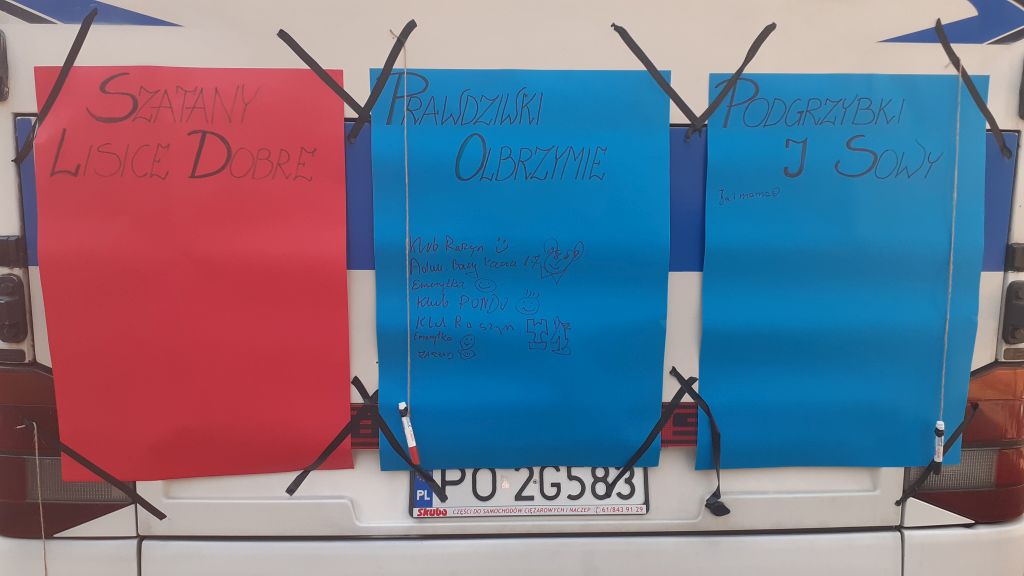 SZATANY
LISICE DOBRE
PRAWDZIWKI
OLBRZYMIE
Klub Raszyn
17
Emerytka
Klub
Klub Raszyn
Emerytka
PODGRZYBKI
I SOWY
Ja i mama
PL PO 2G583
Skuba CZĘŚCI DO SAMOCHODÓW CIĘŻAROWYCH I NACZEP 61/843 91 29